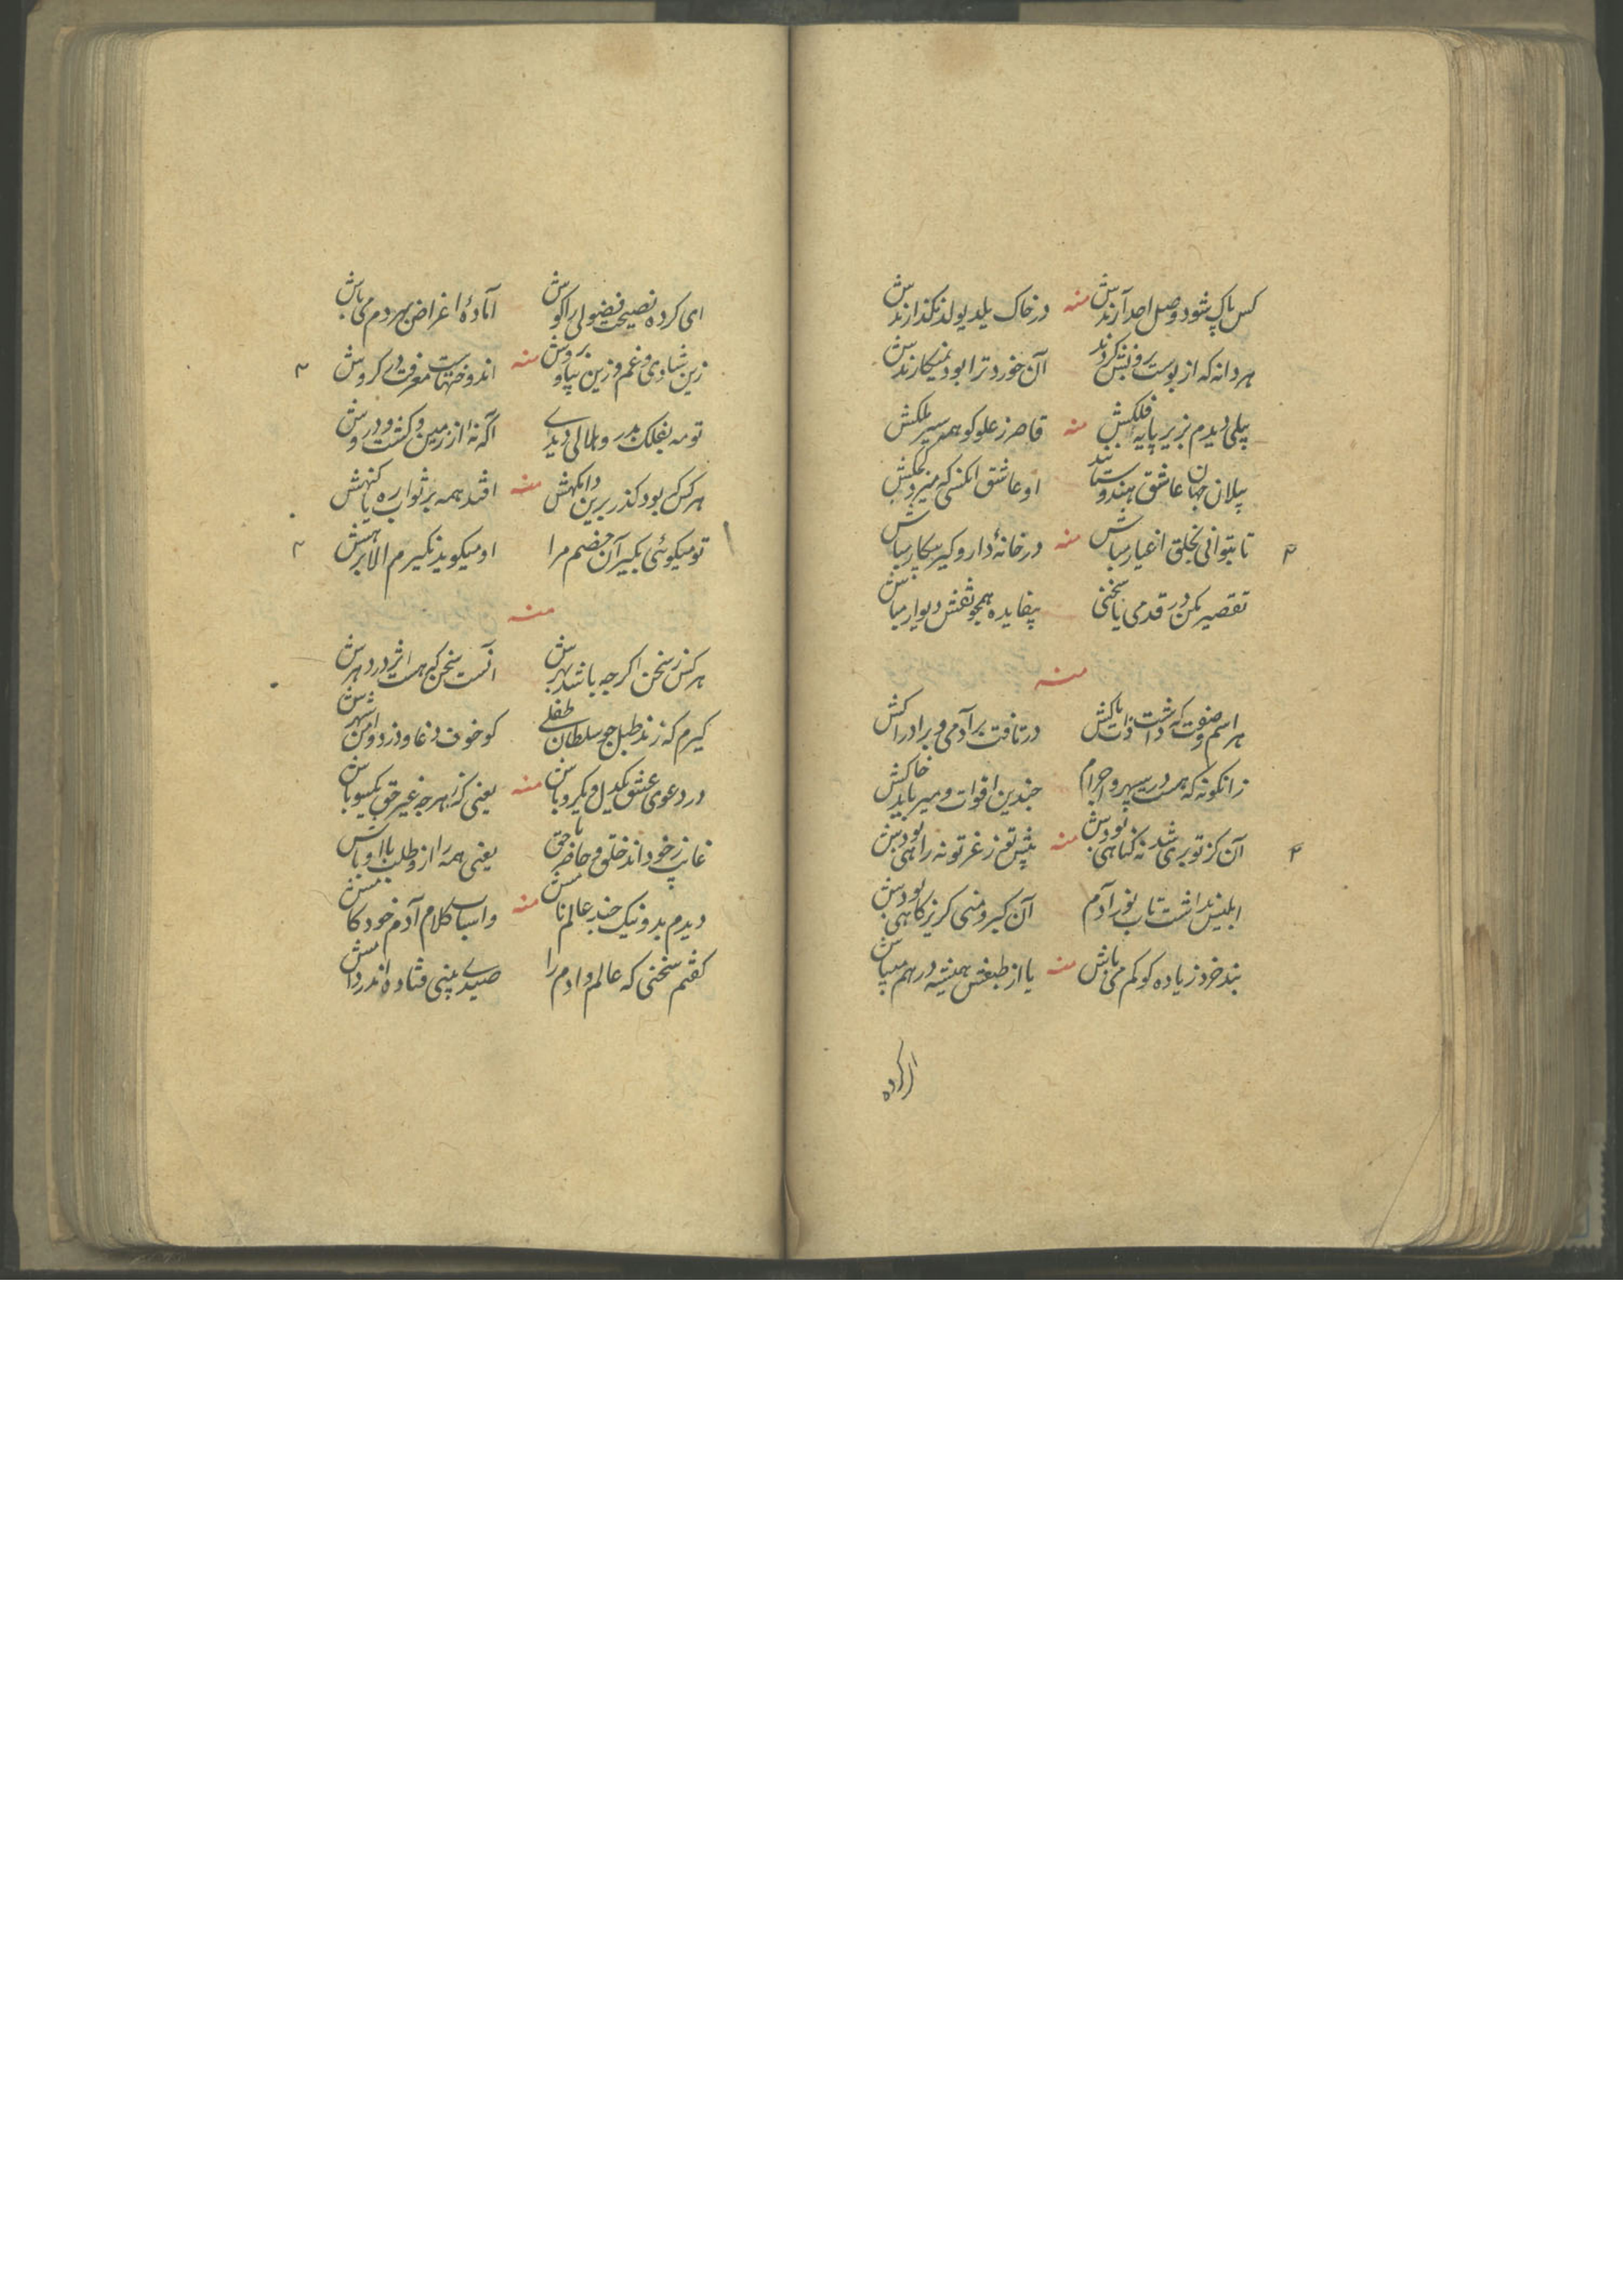 کس پاک شود وصل احد آرندش منه در خاک یلد یولد نگذارندش
هر دانه که از پوست برونش نکردند آن خورد ترا بود نمیکارندش
پیلی دیدم بزیر پایه فلکش منه قاصر ز علو کوهسر ملکش
پیلان جهان عاشق هندوستانند او عاشق انکسی که میزد کجکش
تا بتوانی بخلق اغیار مباش منه در خانهٔ دار و گیر بیکار مباش
تقصیر مکن در قدمی یا سخنی بیفایده همچو نقش دیوار مباش
منه
هر اسم و صفت که داشت ذات پاکش در تافت بر آدمی و بر ادراکش
زانگونه که هست در سپهر و اجرام چندین اقوات و میرباید خاکش
آن کز تو بری شد نه گناهی بودش منه پیش تو ز غیر تو نه راهی بودش
ابلیس نداشت تاب نور آدم آن کبر و منی گریزگاهی بودش
بند خرد زیاده گو کم می باش منه یا از طبعش همیشه در هم میباش
ای کرده نصیحت فضولی را گوش آمادهٔ اغراض بهر دم می باش
زین شادی و غم و زین بیا و بروش منه اندوختهاست معرفت در گروش
تو مه بفلک بدر و هلالی دیدی آگه نهٔ از زمین و کشت و دروش
هر کس بود گذر برین دامگهش منه افتد همه بر ثواب ره یا گنهش
تو میگوئی بگیر آن خصم مرا او میگوید نگیرم الا برهش
منه
هر کس ز سخن اگرچه باشد بهرش آنست سخن که هست اثر در دهرش
گیرم که زند طبل چو سلطان طفلی کو خوف دغا و دزد و امن شهرش
در دعوی عشق یکدل و یکرو باش منه یعنی که ز هرچه غیر حق یکسو باش
غایب ز خود اند خلق و حاضر با حق یعنی همه را ازو طلب با او باش
دیدم بد و نیک چند عالم نامش منه و اسباب کلام آدم خودکامش
گفتم سخنی که عالم و ادم را صیدی بینی فتاده اندر دامش